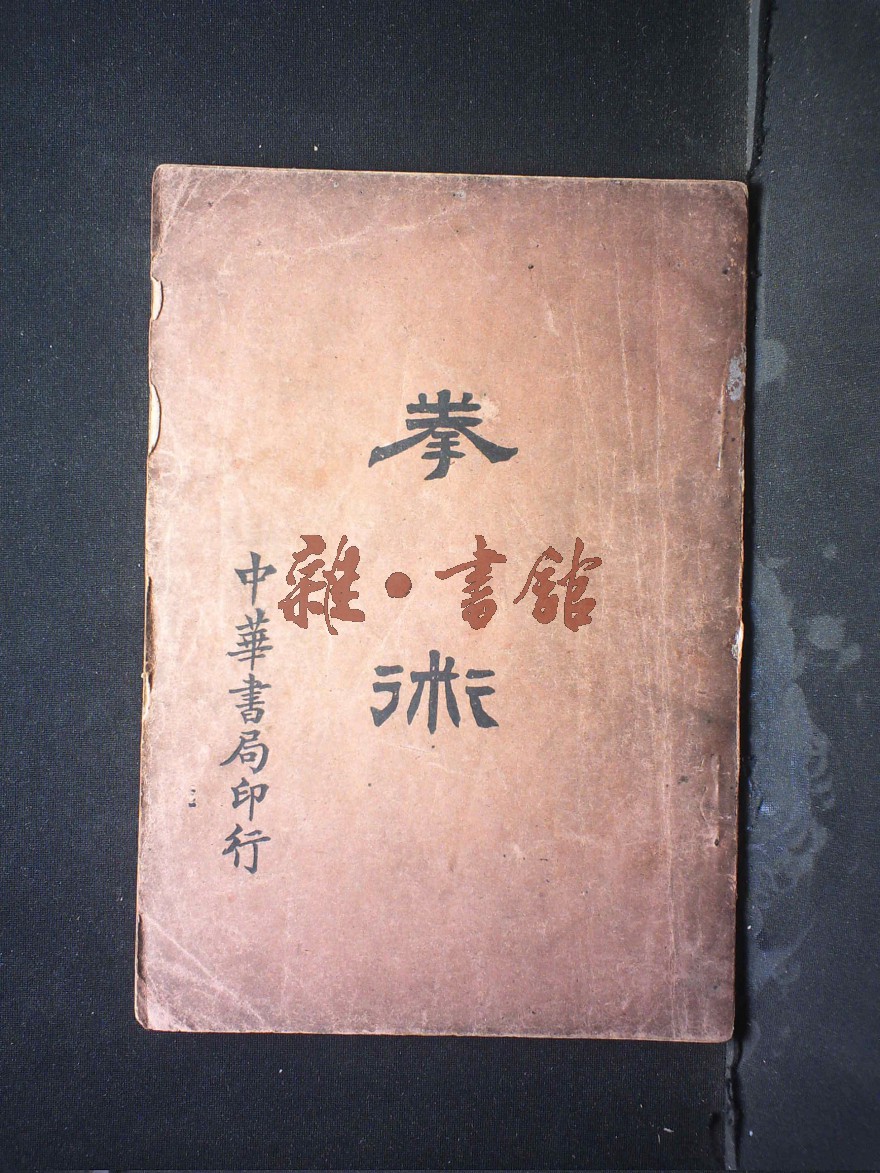 拳術
中華書局印行
雜·書館